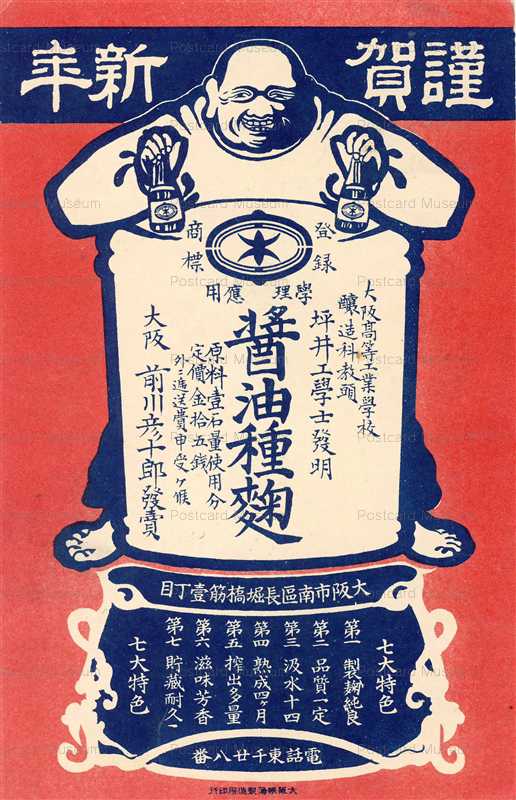 謹賀新年
登録
商標
學理應用
大阪高等工業學校
釀造科教頭
坪井工學士發明
醤油種麹
原料壹石量使用分
定價金拾五錢
外ニ逓送費申受ヶ候
大阪 前川彦十郎發賣
大阪市南區長堀橋筋壹丁目
七大特色
第一 製麹純良
第二 品質一定
第三 汲水十四
第四 熟成四ヶ月
第五 搾出多量
第六 滋味芳香
第七 貯藏耐久
七大特色
電話東千廿八番
Postcard Museum